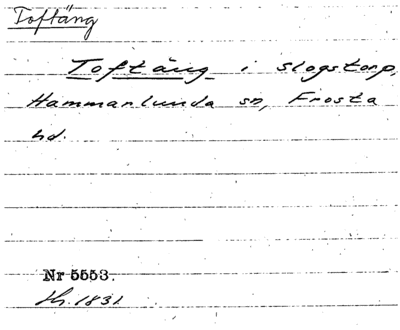 Toftäng
Toftäng i Slogstorp,
Hammarlunda sn, Frosta
hd.
Nr 5553.
Hr. 1831